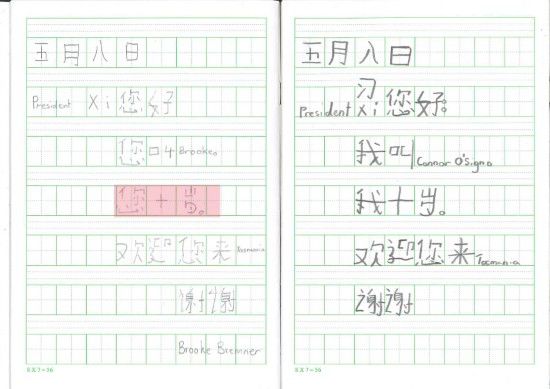 五月八日
President Xi 您好
您叫Brooke。
您十岁。
欢迎您来Tasmania
谢谢
Brooke Bremner
8X7=56
五月八日
习
President Xi 您好。
我叫Connor O'Signo
我十岁。
欢迎您来Tasmania
谢谢
8X7=56